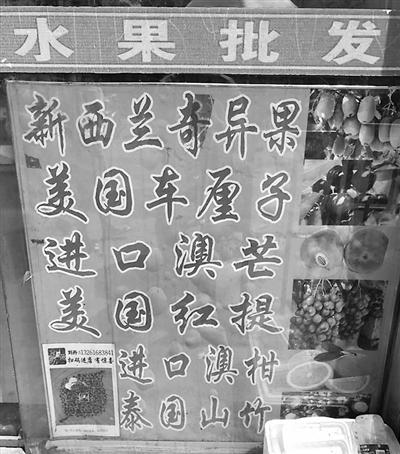 水果批发
新西兰奇异果
美国车厘子
进口澳芒
美国红提
进口澳柑
泰国山竹
13261683841
扫码进店 有惊喜